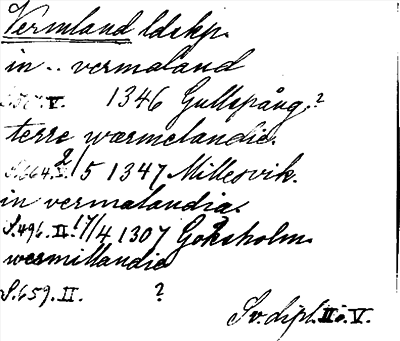 Vermland ldskp.
in .. vermaland
V. 1346 Gullspång?
terre wærmelandie.
S. 664. V. 2/5 1347 Millesvik.
in vermalandia.
S. 496. II. 17/4 1307 Goksholm.
wermillandia
S. 659. II. ?
Sv. dipl. II o. V.